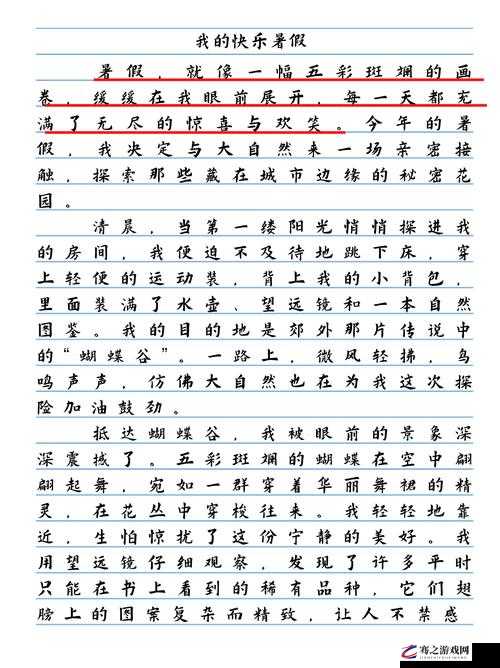 我的快乐暑假
暑假，就像一幅五彩斑斓的画
卷，缓缓在我眼前展开，每一天都充
满了无尽的惊喜与欢笑。今年的暑
假，我决定与大自然来一场亲密接
触，探索那些藏在城市边缘的秘密花
园。
清晨，当第一缕阳光悄悄探进我
的房间，我便迫不及待地跳下床，穿
上轻便的运动装，背上我的小背包，
里面装满了水壶、望远镜和一本自然
图鉴。我的目的地是郊外那片传说中
的“蝴蝶谷”。一路上，微风轻拂，鸟
鸣声声，仿佛大自然也在为我这次探
险加油鼓劲。
抵达蝴蝶谷，我被眼前的景象深
深震撼了。五彩斑斓的蝴蝶在空中翩
翩起舞，宛如一群穿着华丽舞裙的精
灵，在花丛中穿梭往来。我轻轻地靠
近，生怕惊扰了这份宁静的美好。我
用望远镜仔细观察，发现了许多平时
只能在书上看到的稀有品种，它们翅
膀上的图案复杂而精致，让人不禁感
骞之游戏网